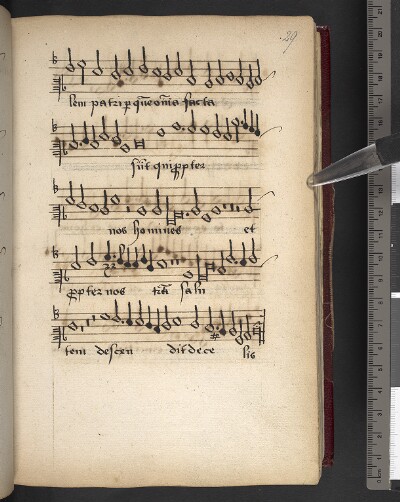 29
lem patri p que om̄a facta
sūt qui ppter
nos homines et
ppter nos salu
tem descen dit de ce lis